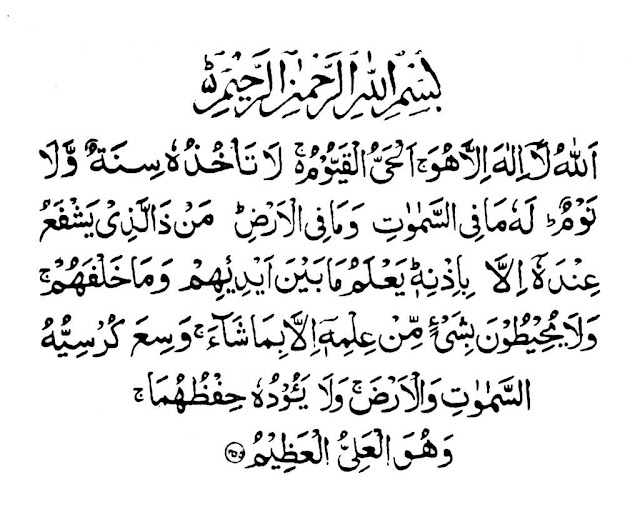 بِسْمِ اللّٰهِ الرَّحْمٰنِ الرَّحِيْمِ ؕ
اَللّٰهُ لَاۤ اِلٰهَ اِلَّا هُوَ ۚ اَلْحَىُّ الْقَيُّوْمُ ۚ لَا تَاْخُذُهٗ سِنَةٌ وَّلَا
نَوْمٌ ؕ لَهٗ مَا فِى السَّمٰوٰتِ وَمَا فِى الْاَرْضِ ؕ مَنْ ذَا الَّذِىْ يَشْفَعُ
عِنْدَهٗۤ اِلَّا بِاِذْنِهٖ ؕ يَعْلَمُ مَا بَيْنَ اَيْدِيْهِمْ وَمَا خَلْفَهُمْ ۚ
وَلَا يُحِيْطُوْنَ بِشَىْءٍ مِّنْ عِلْمِهٖۤ اِلَّا بِمَا شَآءَ ۚ وَسِعَ كُرْسِيُّهُ
السَّمٰوٰتِ وَالْاَرْضَ ۚ وَلَا يَـُٔوْدُهٗ حِفْظُهُمَا ۚ
وَهُوَ الْعَلِىُّ الْعَظِيْمُ ۝۲۵۵